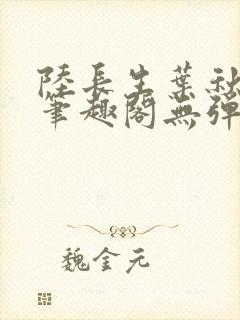 陸長生葉秋
筆趣閣無彈
魏金元